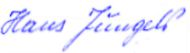 Hans Jüngel